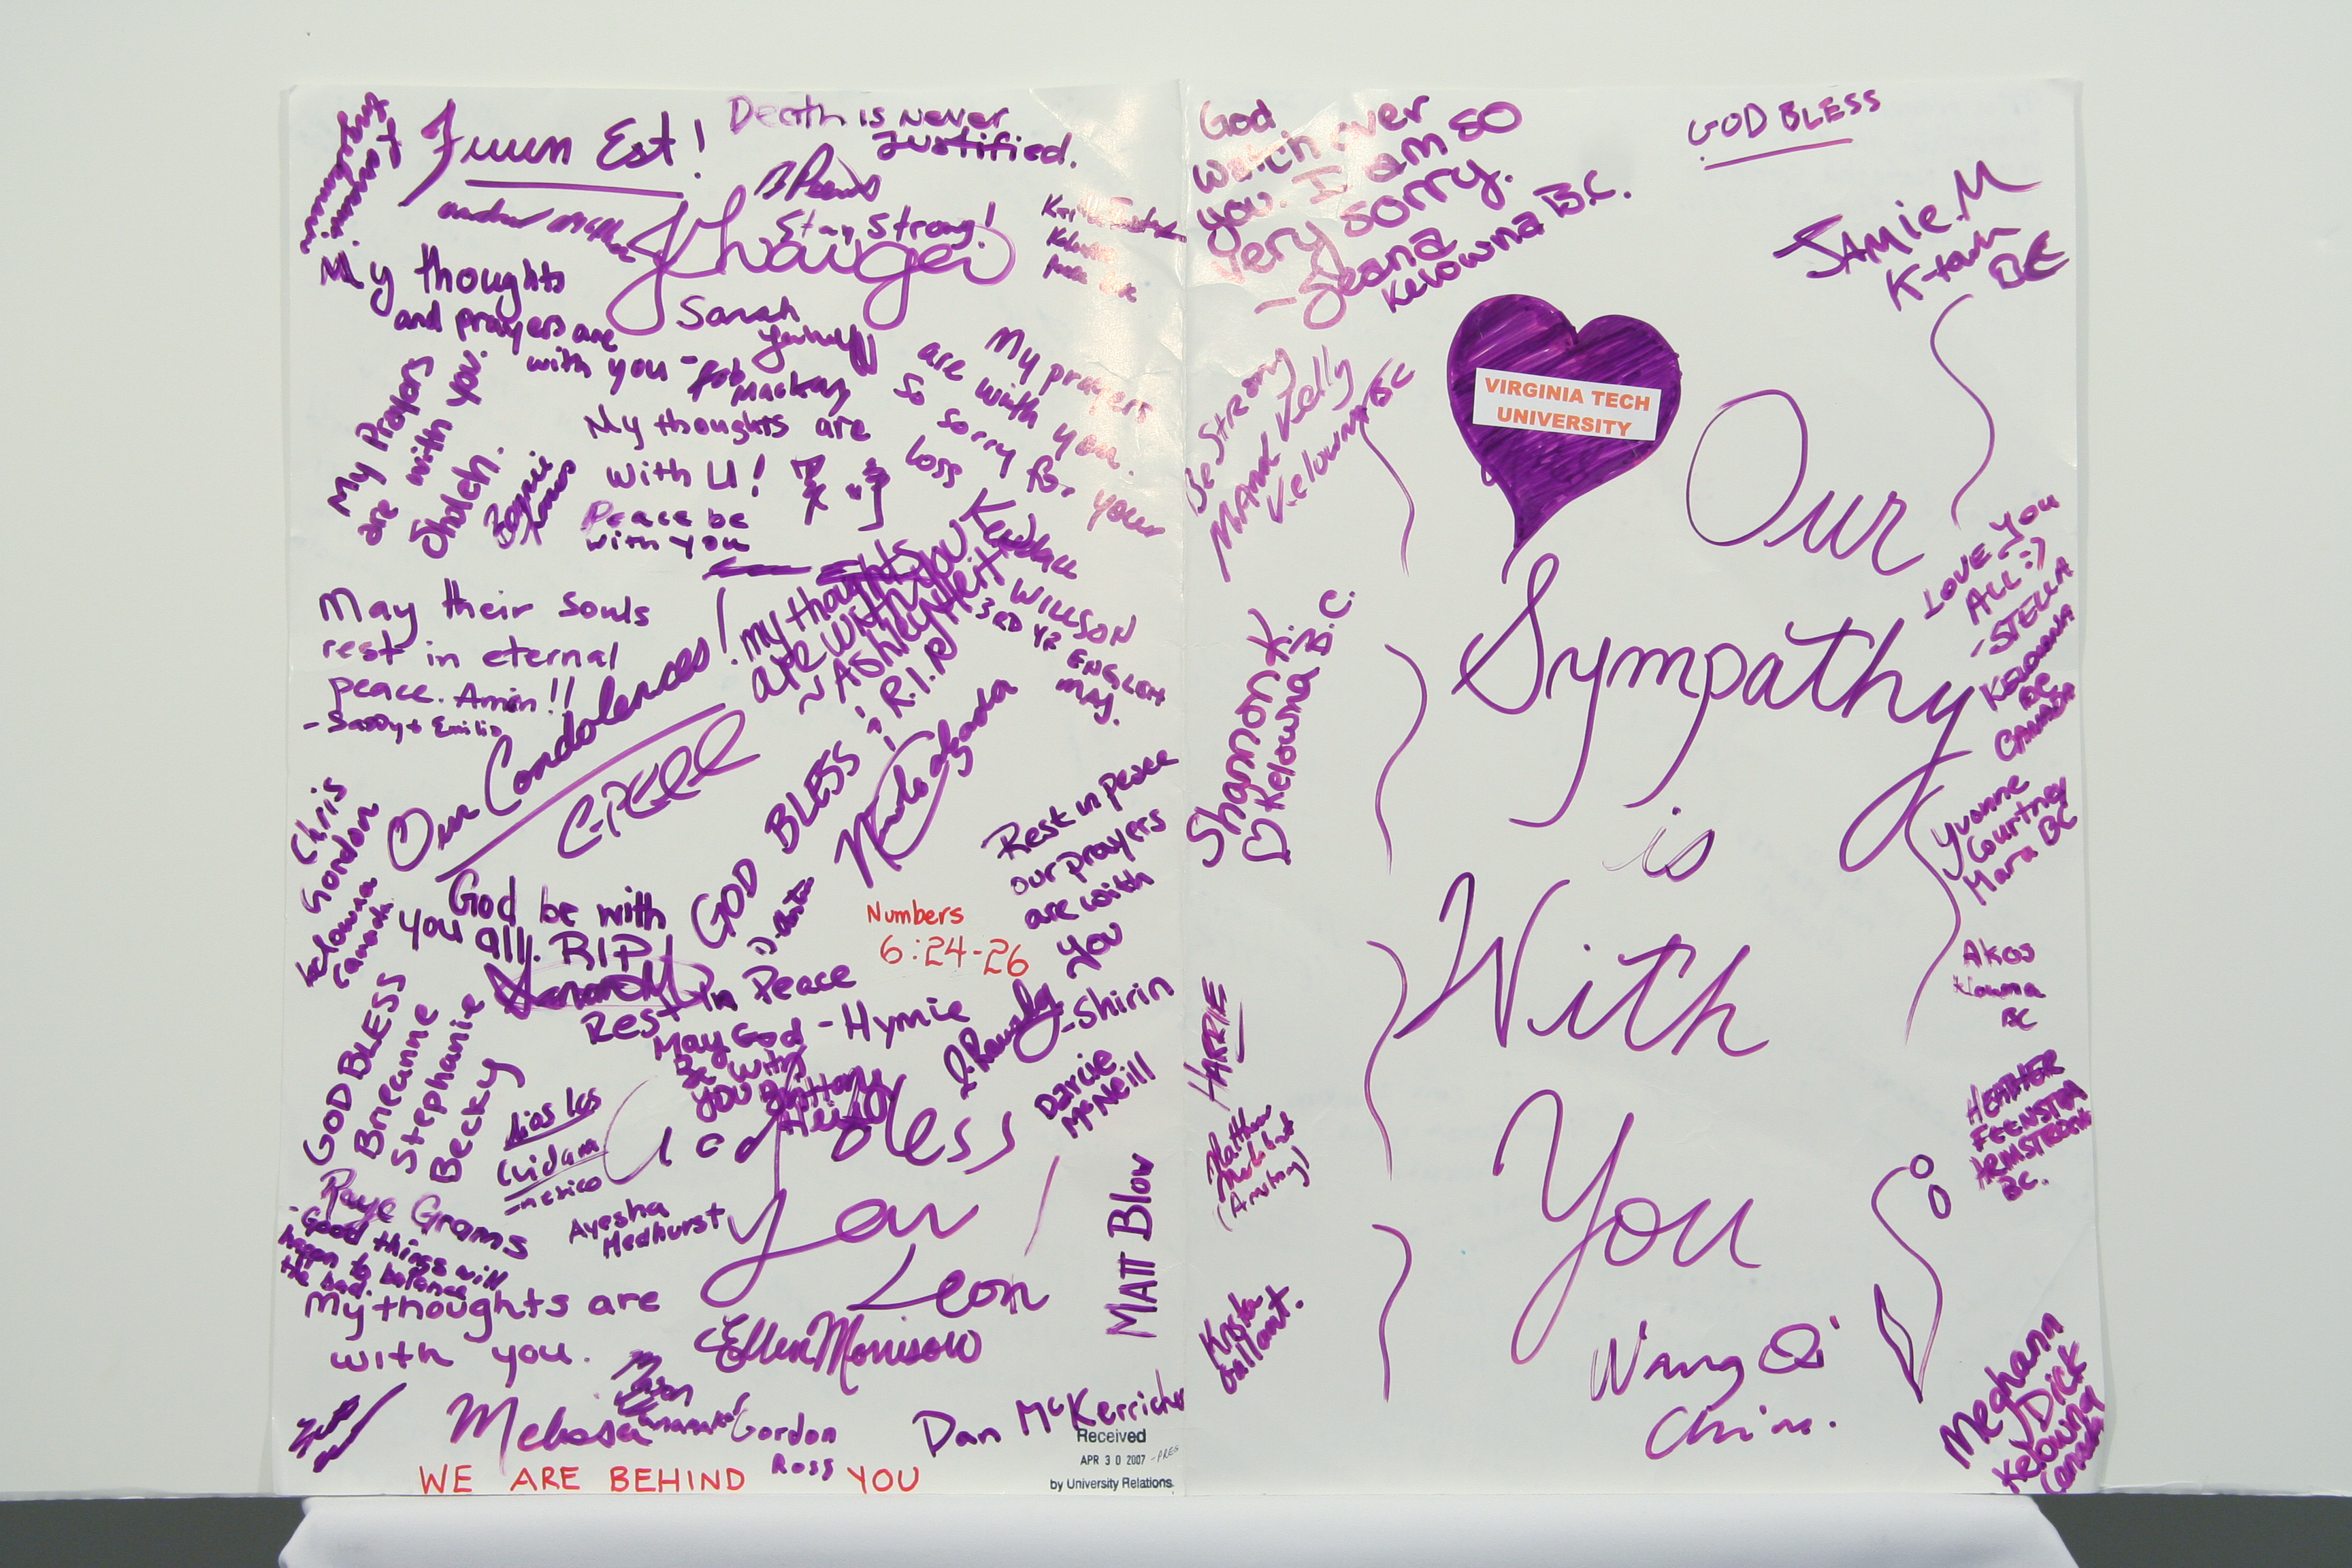 Est!
Death is never
Justified.
Stay Strong!
My thoughts
and prayers are
with you -Rob
Mackay
Sarah
My Prayers
are with you.
Sholeh.
My thoughts are
with U!
Peace be
with you
My prayers
are with you.
so sorry for your
loss
Kendall
Willson
3RD YR ENGLISH
MAJ.
my thoughts
are with you
~ Ashley
R.I.P
May their souls
rest in eternal
peace. Amin!!
- Sassy + Emilio
Our Condolences!
Chris
Gordon
Kelowna
Canada
GOD BLESS
God be with
you all. RIP!
Numbers
6:24-26
Rest in peace
our prayers
are with
you
-Shirin
Rest in Peace
-Hymie
May God
Be with
you Brittany
GOD BLESS
Breanne
Stephanie
Becky
Dios los
cuidara
-mexico
God bless
you
Leon
Darcie
McNeill
Raye Grams
-Good things will
happen to balance
the bad.
Ayesha
Medhurst
Matt Blow
My thoughts are
with you.
Ellen Morrison
Melissa
Gordon
Ross
Dan McKerricher
WE ARE BEHIND YOU
Received
APR 30 2007 -PRES
by University Relations
God
watch over
you. I am so
very sorry.
-Jeana
Kelowna B.C.
GOD BLESS
Jamie.M
K-town
BC
Be Strong
Mandi Kelly
Kelowna BC
VIRGINIA TECH
UNIVERSITY
Our
Sympathy
is
With
You
Wang Qi
China.
Shannon K.
♡ Kelowna B.C.
HARRIE
Matthew
(Armstrong)
Krista
Gallant.
LOVE YOU
ALL :)
-STELLA
KELOWNA
BC
CANADA
Yvonne
Courtney
Mara BC
Akos
Kelowna
BC
HEATHER
FEENSTRA
ARMSTRONG
BC.
Meghann
Dick
Kelowna
Canada